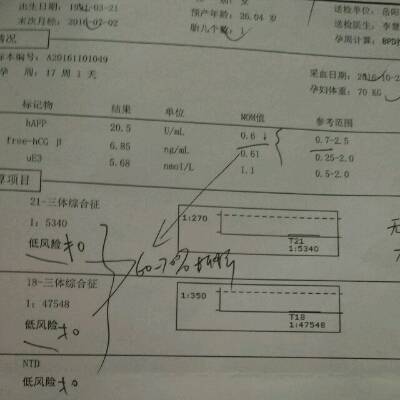 出生日期: 19
末次月经:
预产年龄: 26.04 岁
胎儿个数: 1
送检单位: 岳阳
送检医生: 李
孕周计算: BPD
情况
标本编号: A20161101049
孕 周: 17 周 1 天
采血日期: 2016-10-2
孕妇体重: 70 KG
标记物 结果 单位 MOM值 参考范围
hAFP 20.5 U/mL 0.6 ↓ 0.7-2.5
free-hCG β 6.85 ng/mL 0.61 0.25-2.0
uE3 5.68 nmol/L 1.1 0.5-2.0
算项目
21-三体综合征
1: 5340
低风险 ≠0
1:270
T21
1:5340
60-70%
18-三体综合征
1: 47548
低风险 ≠0
1:350
T18
1:47548
NTD
低风险 ≠0